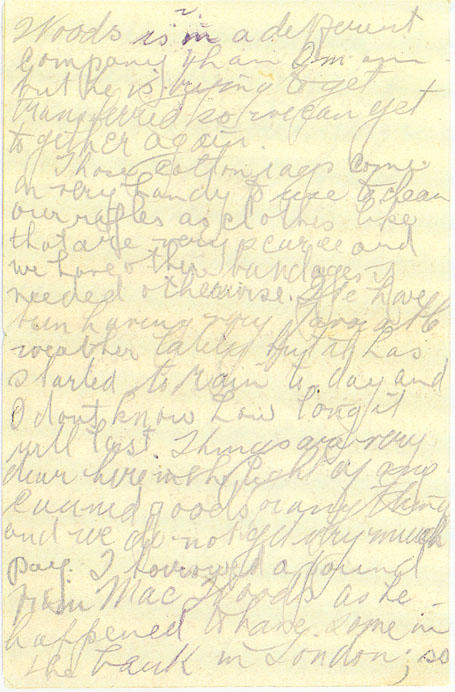 Woods is in a different
Company than I'm in
but he is trying to get
transferred so we can get
together again.
Those cotton rags come
in very handy to use to clean
our rifles as clothes like
that are very scarce and
we have other bandages if
needed otherwise. We have
bun having very favorable
weather lately but it has
started to rain to day and
I dont know how long it
will last. Things are very
dear here in the light of any
canned goods or any thing
and we do not get very much
pay. I borrowed a pound
from Mac Woods as he
happened to have some in
the bank in London; so